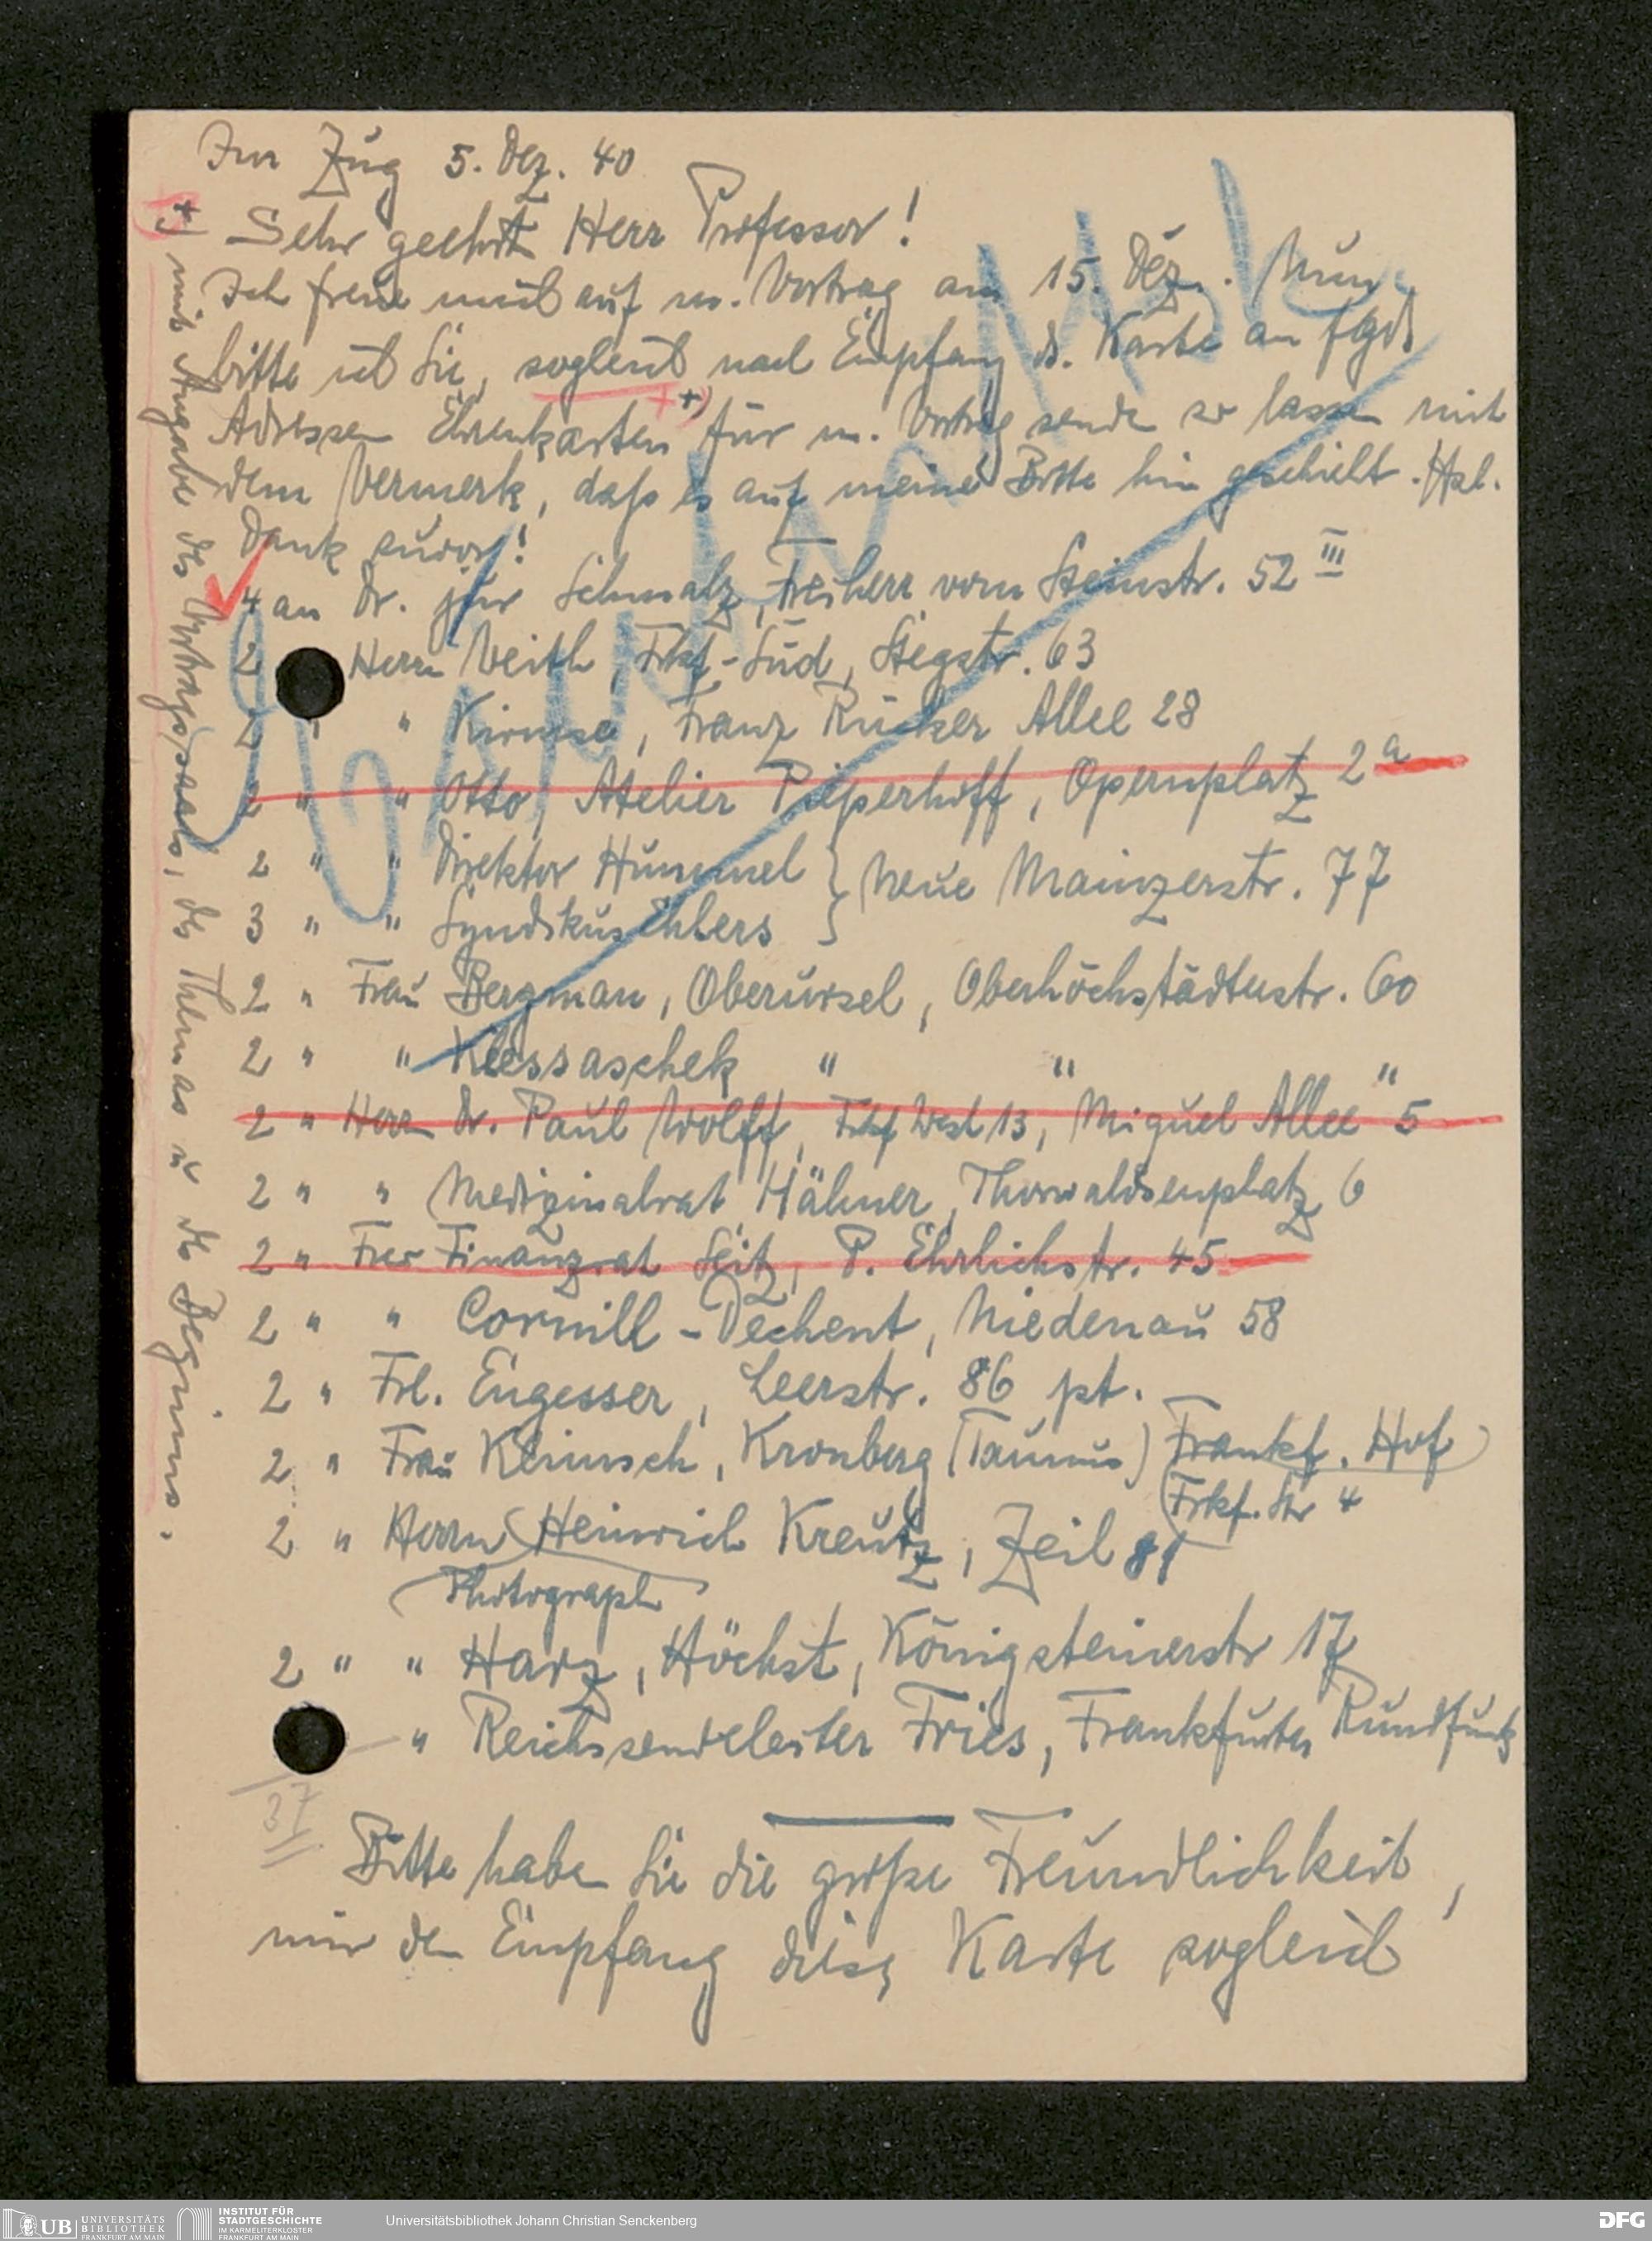 Im Zug 5. Dez. 40
Sehr geehrter Herr Professor!
Ich freue mich auf m. Vortrag am 15. Dez. Nun
bitte ich Sie, sogleich nach Empfang d. Karte an flgde
Adressen Ehrenkarten +) für m. Vortrag senden zu lassen mit
dem Vermerk, daß es auf meine Bitte hin geschieht. Hzl.
Dank zuvor!
4 an Dr. jur Schmalz, Freiherr vom Steinstr. 52 III
2 Herrn Veith, Frkf-Süd, Stegstr. 63
2 " " Kirmse, Franz Rücker Allee 28
2 " " Otto, Atelier Pieperhoff, Opernplatz 2a
2 " " Direktor Hummel } Neue Mainzerstr. 77
3 " " Syndikus Ehlers }
2 " Frau Bergman, Oberursel, Oberhöchstädterstr. 60
2 " " Klessaschek " " "
2 " Herrn Dr. Paul Wolff, Frkf West 13, Miquel Allee 5
2 " " Medizinalrat Hähner, Thorwaldsenplatz 6
2 " Finanzrat Seitz, P. Ehrlichstr. 45
2 " " Cornill-Dechent, Niedenau 58
2 " Frl. Eugesser, Leerstr. 86 pt.
2 " Frau Klimsch, Kronberg (Taunus) Frankf. Hof
(Frkf. Str 4
2 " Herrn Heinrich Kreutz, Zeil 81
Photograph
2 " " Harz, Höchst, Königsteinerstr 17
" Reichssendeleiter Fries, Frankfurter Rundfunk
37
Bitte haben Sie die große Freundlichkeit,
mir den Empfang dieser Karte sogleich
+) mit Angabe des Vortragssaals, des Themas u des Beginns.
UB UNIVERSITÄTS
BIBLIOTHEK
FRANKFURT AM MAIN
INSTITUT FÜR
STADTGESCHICHTE
IM KARMELITERKLOSTER
FRANKFURT AM MAIN
Universitätsbibliothek Johann Christian Senckenberg
DFG